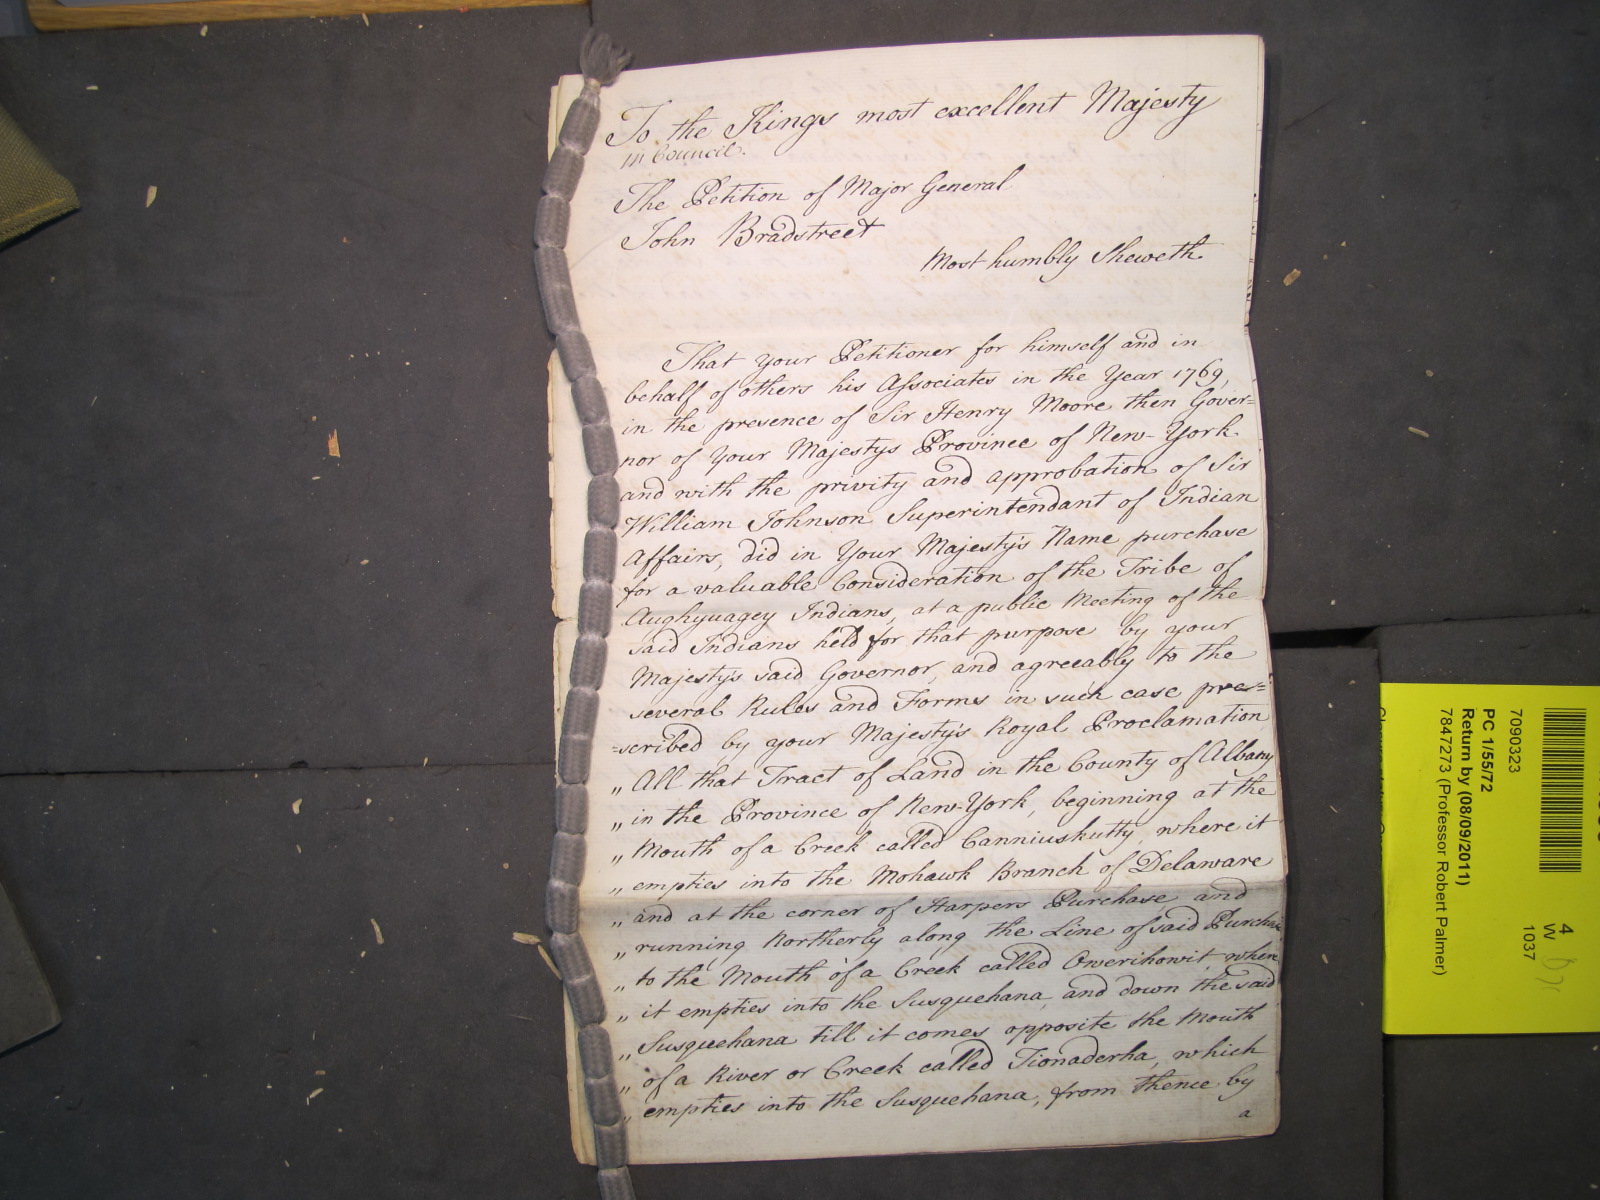 To the Kings most excellent Majesty
in Council.
The Petition of Major General
John Bradstreet
Most humbly Sheweth
That your Petitioner for himself and in
behalf of others his Associates in the Year 1769,
in the presence of Sir Henry Moore then Gover=
nor of your Majestys Province of New-York
and with the privity and approbation of Sir
William Johnson Superintendant of Indian
Affairs, did in Your Majesty's Name purchase
for a valuable Consideration of the Tribe of
Aughyuagey Indians, at a public Meeting of the
said Indians held for that purpose by your
Majesty's said Governor, and agreeably to the
several Rules and Forms in such case pres=
=scribed by your Majesty's Royal Proclamation
„ All that Tract of Land in the County of Albany
„ in the Province of New-York, beginning at the
„ Mouth of a Creek called Canniuskutty, where it
„ empties into the Mohawk Branch of Delaware
„ and at the corner of Harpers Purchase, and
„ running Northerly along the Line of said Purchase
„ to the Mouth of a Creek called Owerihowit, where
„ it empties into the Susquehana, and down the said
„ Susquehana till it comes opposite the Mouth
„ of a River or Creek called Tionaderha, which
„ empties into the Susquehana, from thence by
a
7090323
PC 1/55/72
Return by (08/09/2011)
7847273 (Professor Robert Palmer)
4
W
1037